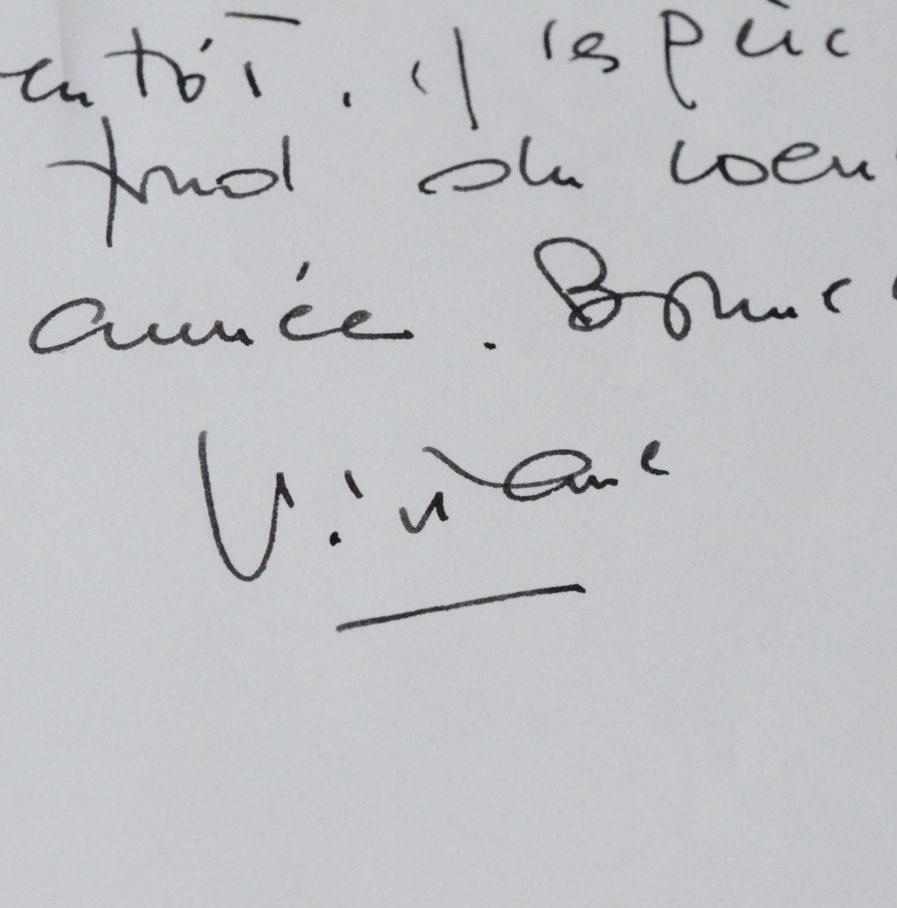 entôt. j'espère
fond du coeu
année. Bonne
Viviane